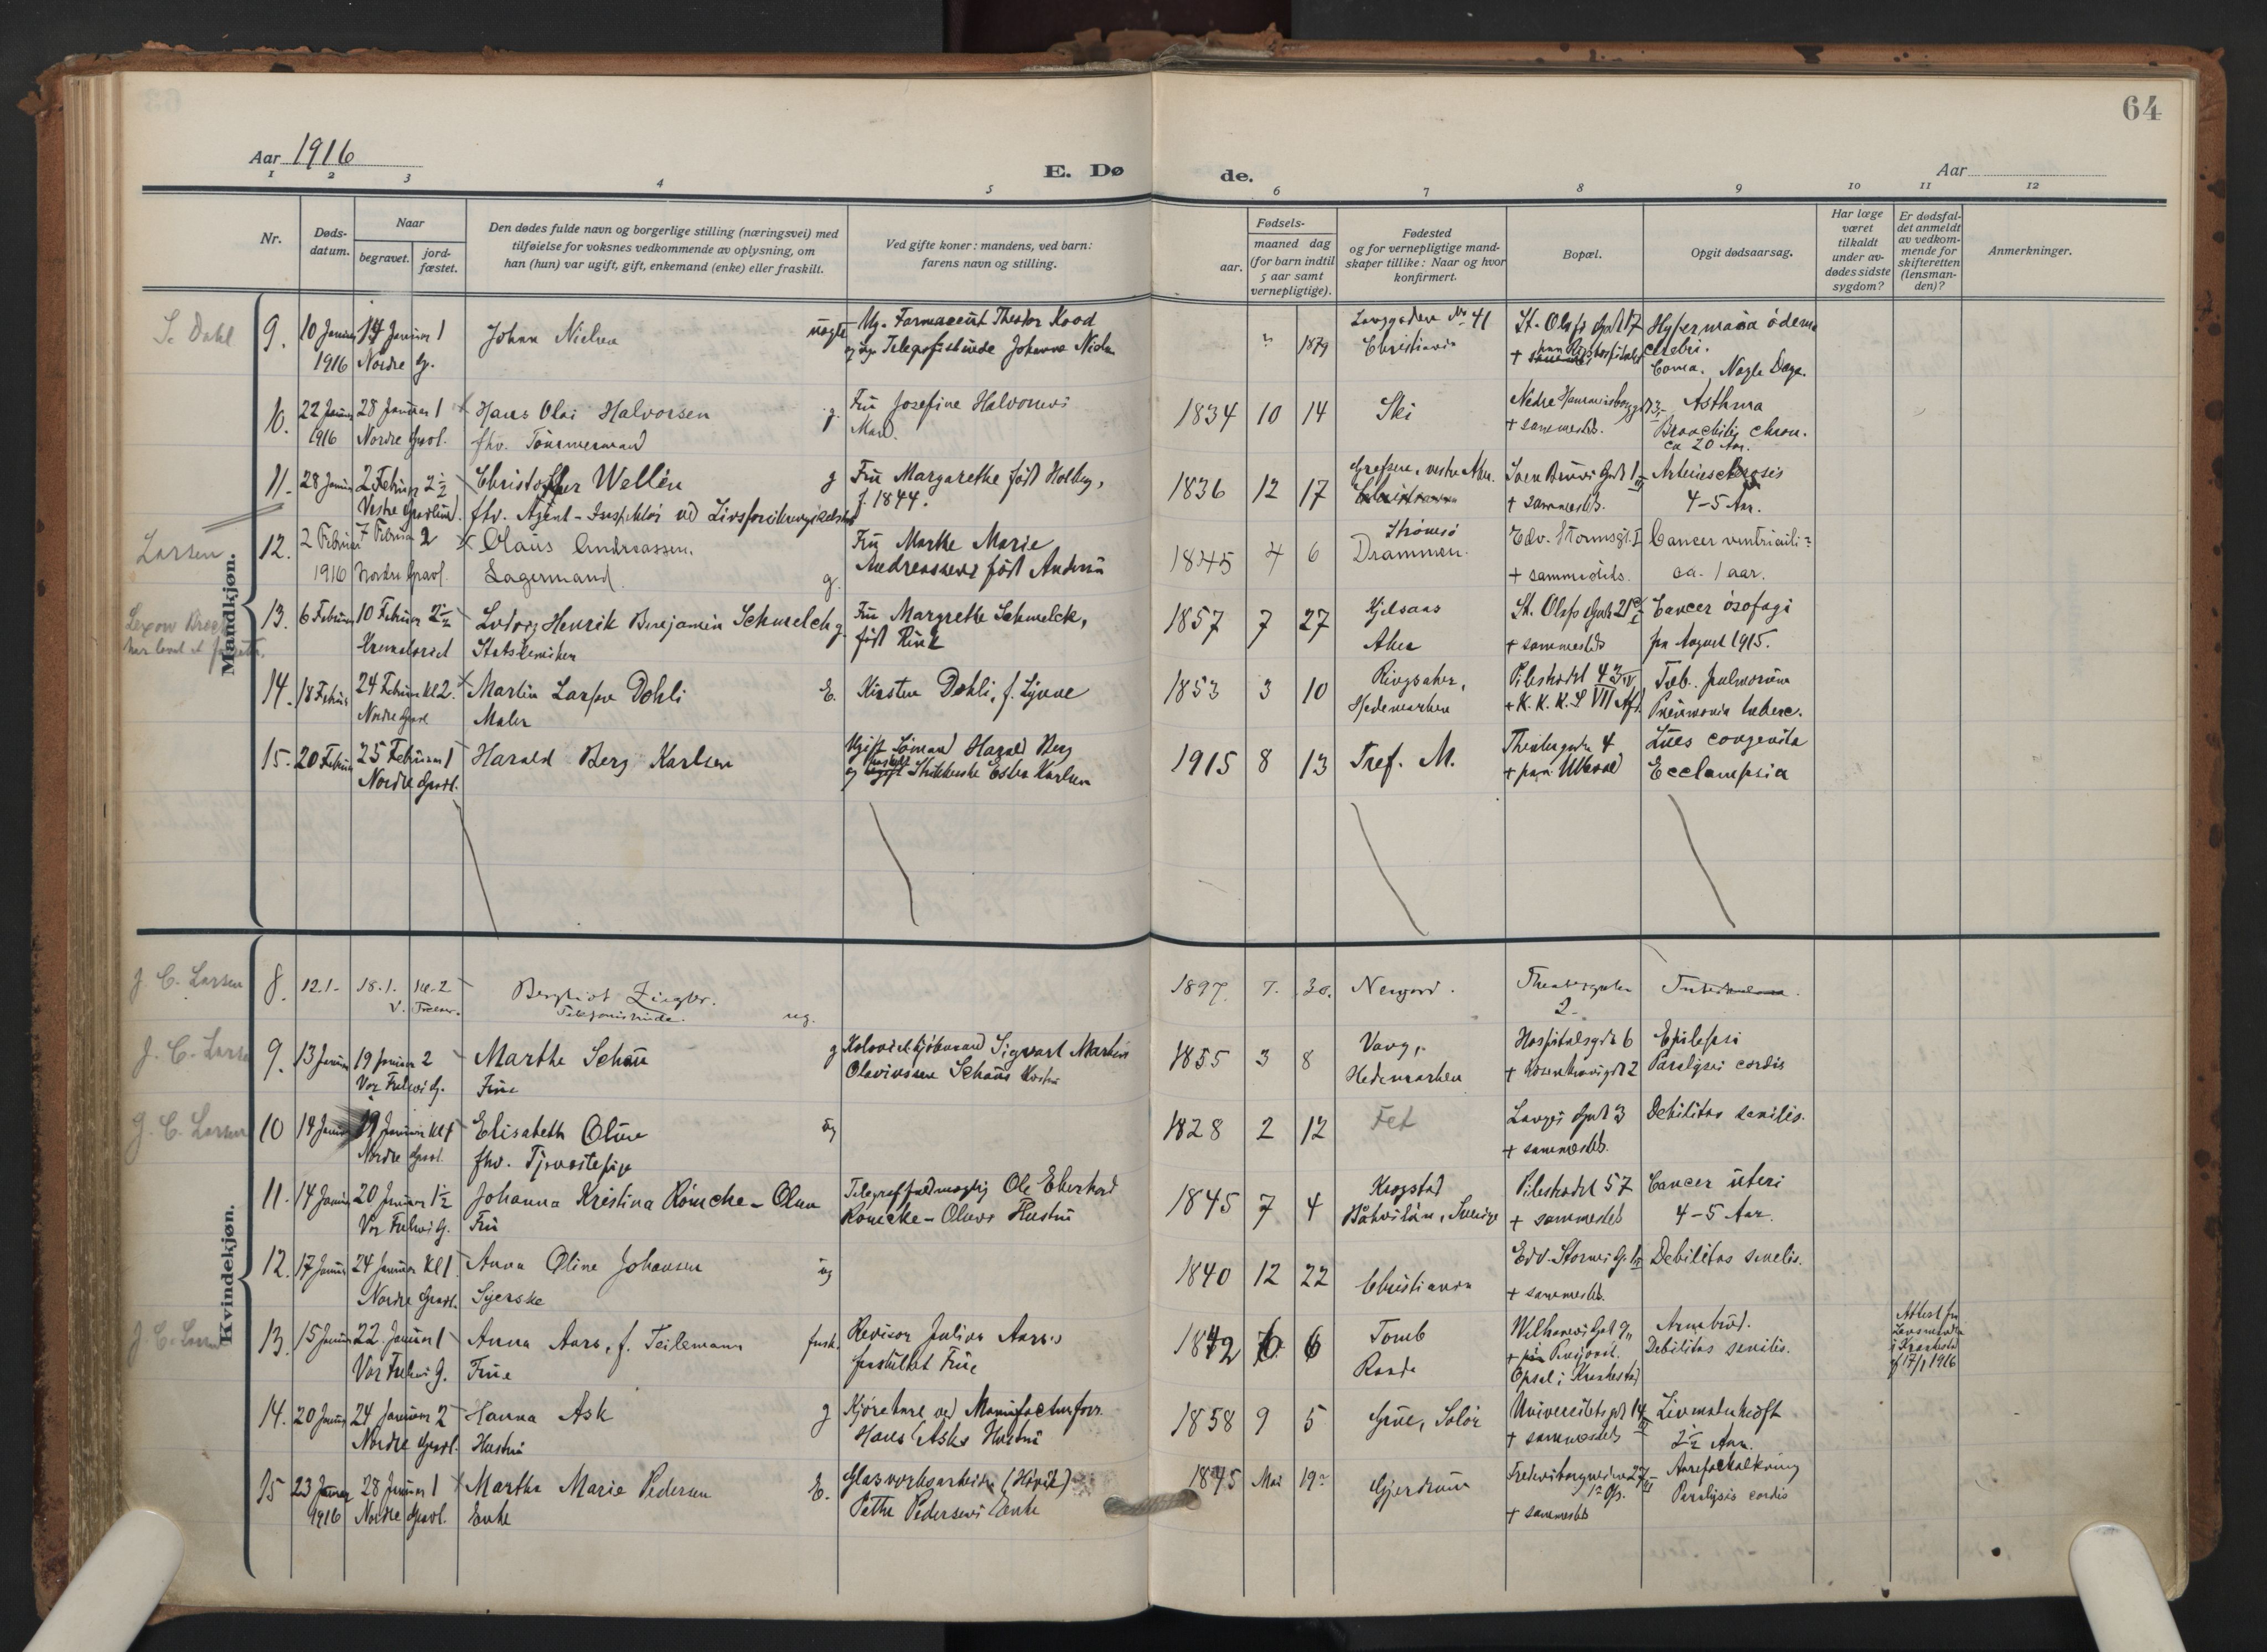 64
Aar 1916
E. Dø
de.
Aar
1 2 3 4 5 6 7 8 9 10 11 12
Nr.
Døds-
datum.
Naar
begravet.
jord-
fæstet.
Den dødes fulde navn og borgerlige stilling (næringsvei) med
tilføielse for voksnes vedkommende av oplysning, om
han (hun) var ugift, gift, enkemand (enke) eller fraskilt.
Ved gifte koner: mandens, ved barn:
farens navn og stilling.
Fødsels-
aar.
maaned dag
(for barn indtil
5 aar samt
vernepligtige).
Fødested
og for vernepligtige mand-
skaper tillike: Naar og hvor
konfirmert.
Bopæl.
Opgit dødsaarsag.
Har læge
været
tilkaldt
under av-
dødes sidste
sygdom?
Er dødsfal-
det anmeldt
av vedkom-
mende for
skifteretten
(lensman-
den)?
Anmerkninger.
Mandkjøn.
S. Dahl
9. 10 Januar 14 Januar 1 Johan Nielsen uægte Ug. Farmaceut Theodor Kood
1916 Nordre G. og Telegrafistinde Johanne
Christiania St. Olafs Gade 17 ödema
cerebri.
Coma. Nogle Dage.
10. 22 Januar 28 Januar 1 Hans Olai Halvorsen g. Fru Josefine Halvorsen
1916 Nordre Gravl. fhv. Tømmermand
1834 10 14 Ski + sammesteds. Asthma
Bronchitis chron.
ca 20 Aar.
11. 28 Januar 2 Februar 2½ Christoffer Wellén g Fru Margarethe født Holberg,
Vestre Gravlund. fhv. Agent - Inspektør ved f. 1844.
1836 12 17 Christiania + sammesteds. Arteriosclerosis
4-5 Aar.
Larsen
12. 2 Februar 7 Februar 2 Olaus Andreassen. Fru Marthe Marie
1916 Nordre Gravl. Lagermand. g. Andreassen født
1845 4 6 Strømsø
Drammen. Edv. Stormsgt. I Cancer ventriculi?
+ sammesteds. ca. 1 aar.
13. 6 Februar 10 Februar 2½ Ludvig Henrik Benjamin Schmelck g. Fru Margrethe Schmelck,
Krematoriet Statskemiker født Rink
1857 7 27 Kjelsaas
Aker St. Olafs Gade 21 Cancer ösofagi
+ sammesteds fra August 1915.
14. 18 Februar 24 Februar kl 2. Martin Larsen Dohli E. Kirsten Dohli, f. Lynne
Nordre Gravl Maler
1853 3 10 Ringsaker,
Hedemarken Pilestrædet 43 IV Tub. pulmonum
+ K. K. K. S VII Afd. Pneumonia tuberc.
15. 20 Februar 25 Februar 1 Harald Berg Karlsen Ugift Sømand Harald Berg
Nordre Gravl. og Ester Karlsen
1915 8 13 Tref. M. Theatergaden 4 Lues congenita
+ paa Ullevaal Ecclampsia
Kvindekjøn.
J. C. Larsen
8. 12.1. 18.1. kl. 2 Bergliot Ziegler.
V. Frelser. Telefonistinde. ug.
1897. 7. 30. Theatergaten
2
J. C. Larsen
9. 13 Januar 19 Januar 2 Marthe Schau g Sigvart Martin
Vor Frelsers G. Frue Olavinssen Schaus Hustru
1855 3 8 Vang,
Hedemarken Hospitalsgden 6 Epilepsi
Paralysis cordis
J. C. Larsen
10 14 Januar 19 Januar Kl 1 Elisabeth Olsen ug
Nordre Gravl. fhv. Tjenestepige
1828 2 12 Fet Langes Gade 3 Debilitas senilis.
+ sammesteds.
11. 14 Januar 20 Januar 1½ Johanna Kristina Römcke-Olsen Telegraffuldmægtig Ole Eberhard
Vor Frelsers G. Fru Römcke-Olsens Hustru
1845 7 4 Krogstad
Båhuslän, Sverige Pilestrædet 57 Cancer uteri
+ sammesteds 4-5 Aar.
12. 17 Januar 24 Januar Kl 1 Anna Oline Johansen ug
Nordre Gravl. Syerske
1840 12 22 Christiania Edv. Storms G. Debilitas senilis.
+ sammesteds.
13. 15 Januar 22 Januar 1 Anna Aars, f. Teilemann frask. Revisor Julius Aars's
Vor Frelsers G. Frue fraskilt Frue
1842 6 6 Tomb
Raade Armbrud.
Debilitas senilis.
Attest fra
Lensmanden
i Kraakstad
af 17/1 1916
14. 20 Januar 24 Januar 2 Hanna Ask g Kjørekarl ved
Nordre Gravl. Hustru Hans Asks Hustru
1858 9 5 Grue, Solør Universitetsgt 14 Livmoderkræft
+ sammesteds 2½ Aar.
15 23 Januar 28 Januar 1 Marthe Marie Pedersen E. Glasverksarbeider (Høvik)
1916 Nordre Gravl. Enke Pedersens Enke
1845 Mai 19? Gjerdrum Aareforkalkning
+ sammesteds Paralysis cordis